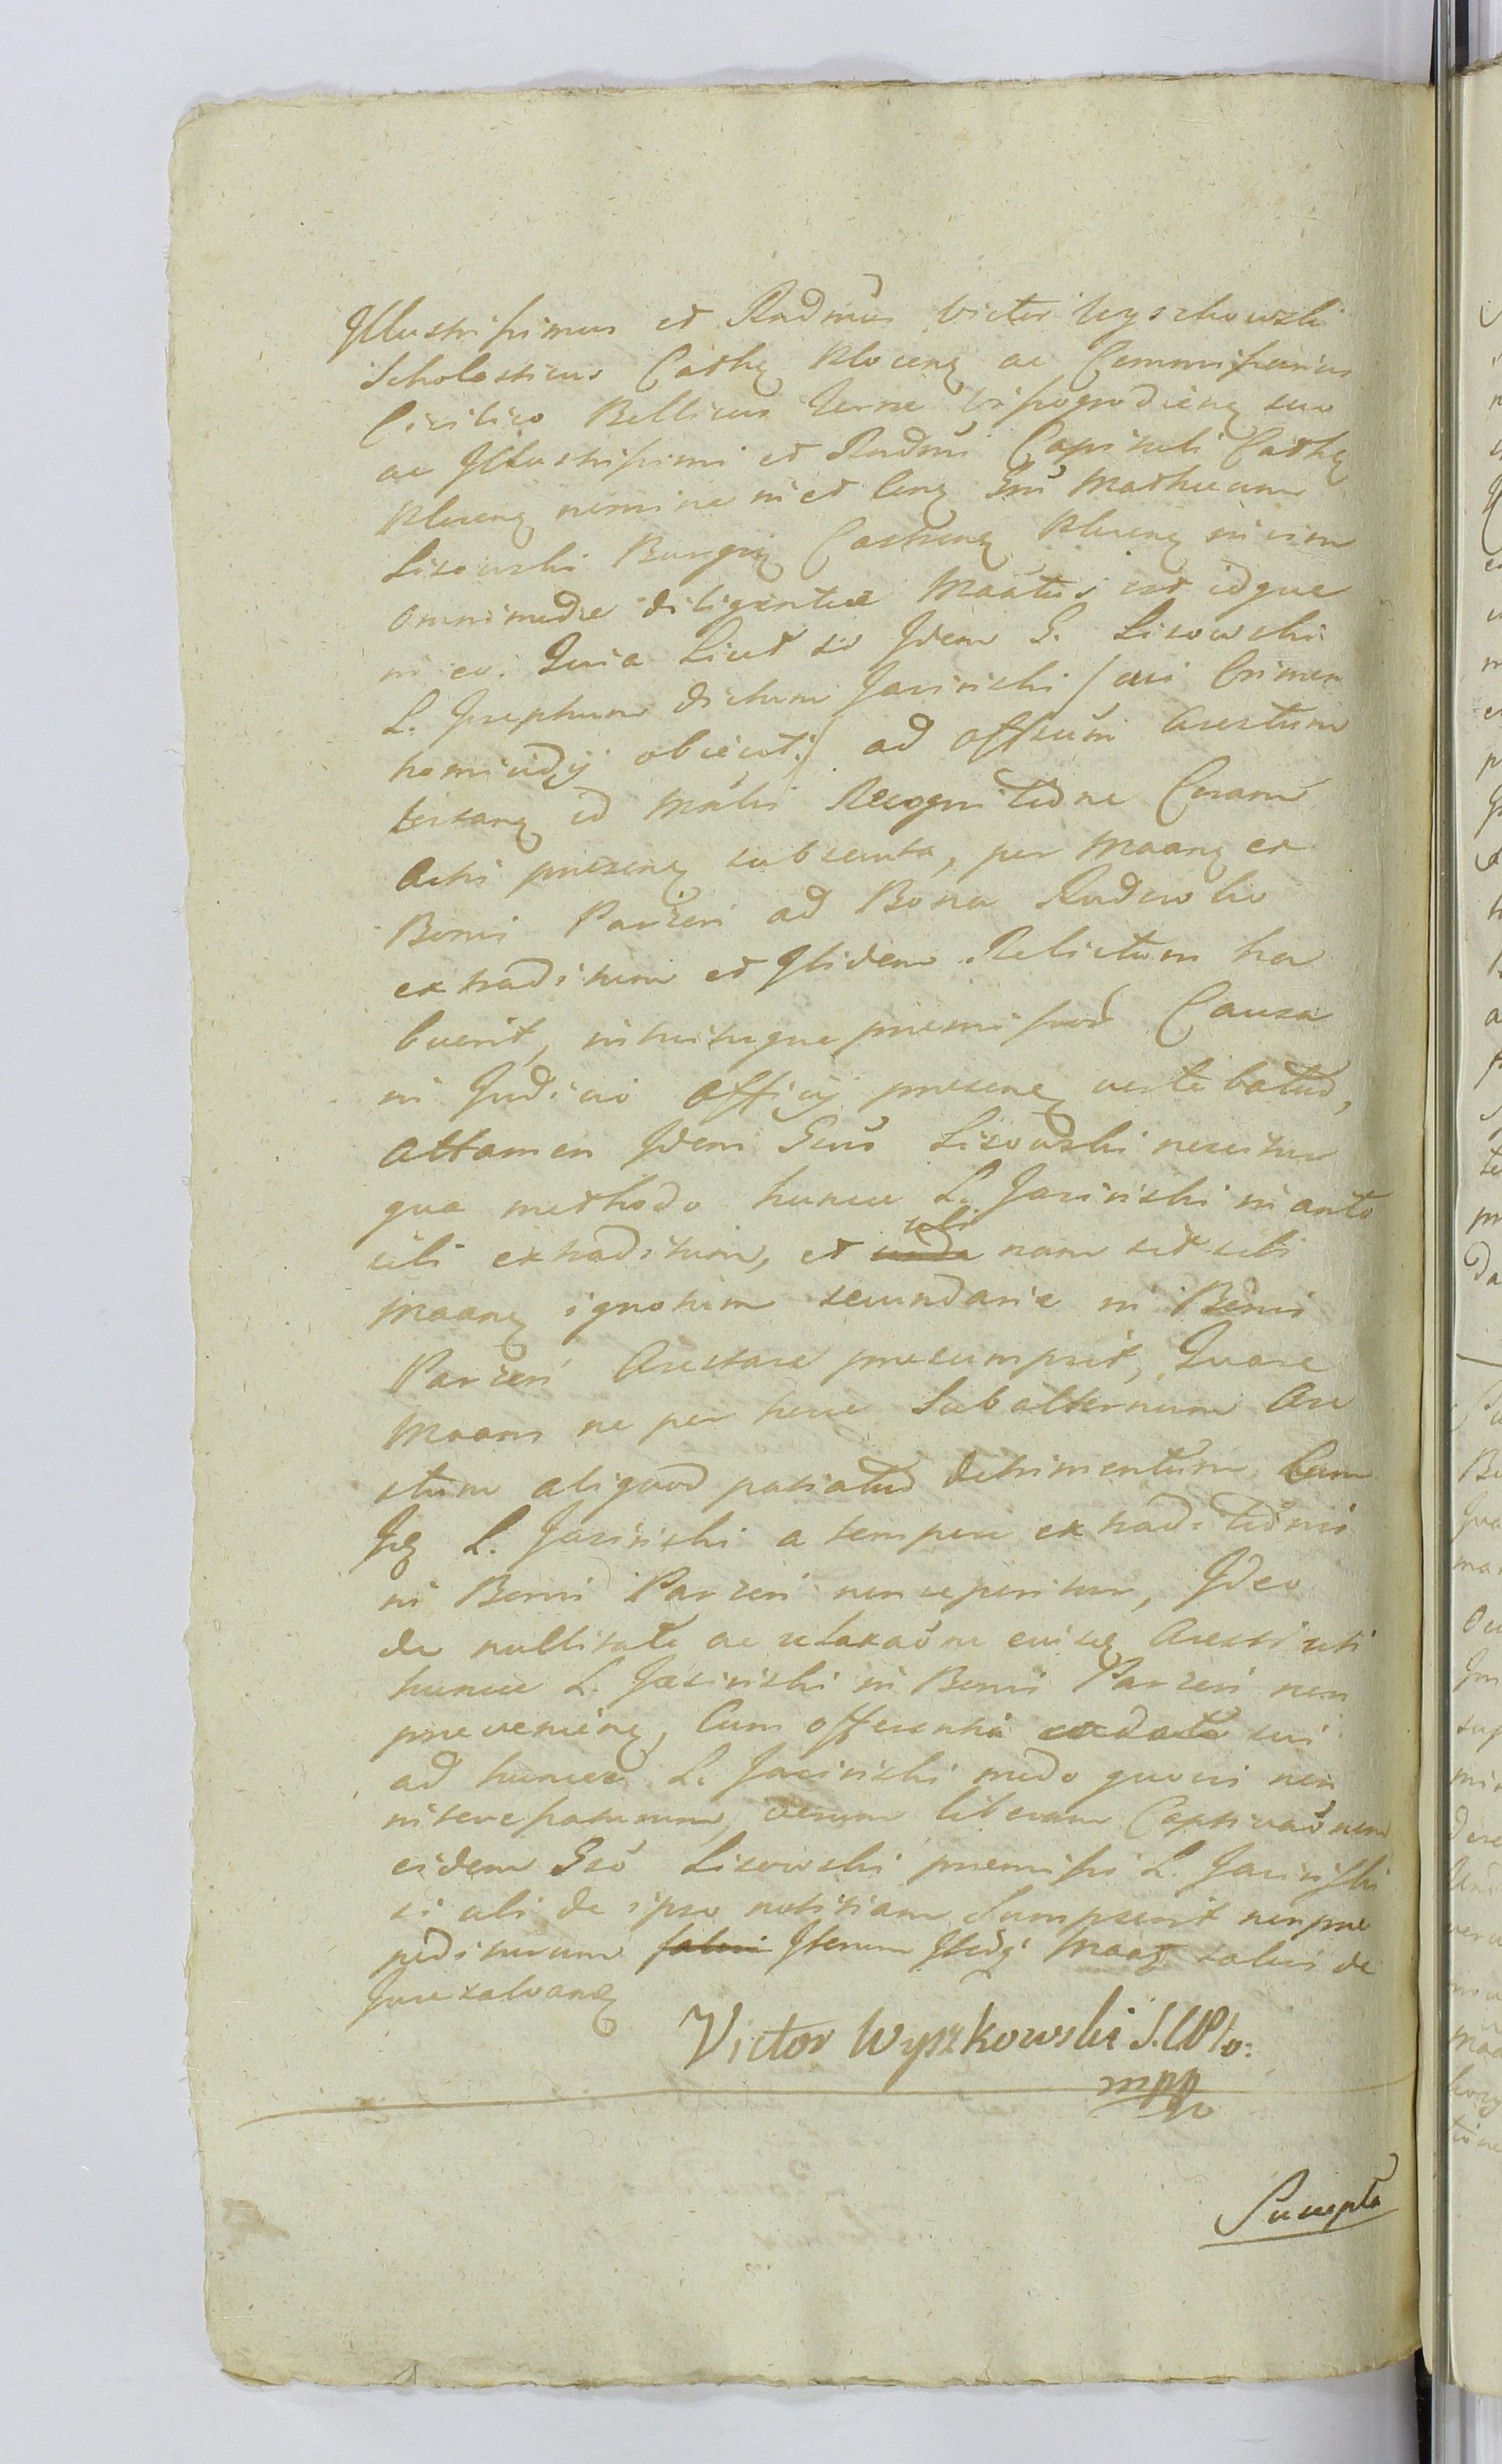 Illustrissimus et Rndmus Victor Wyszkowski
Scholasticus Cathę Plocenę ac Commissarius
Civilico Bellicus Terrae Wyszogrodienę suo
ac Illustrissimi et Rndmi Capituli Cathę
Plocenę nomine in et conę Gnū Mathaeum
Lisowski Burgrę Castrenę Plocenę in vim
omnimodae diligentiae Maātus est idque
in eo. Quia Licet so Idem G. Lisowski
L. Josephum dictum Jasinski /cui Crimen
homicidij obiecit:/ ad offsum Arestum
ad Mnlis Recognitione Coram
Actis praesenę subsecuta, per Maanę ex
Bonis Parzeń ad Bona Radowo
extraditum et Ibidem Relictum ha
buerit, intuituque praemissor Causa
in Judicio Officij praesenę vertebatur,
attamen Idem Gnus Lisowski nescitur
qua methodo hunce L. Jasinski in anto
sibi extraditum, et unde ubi nam sit sibi
Maanę ignotum secundarie in Bonis
Parzeń Arestare praesumpsit, Quare
Maans ne per hoce Subalternum Are
stum aliquod patiatur detrimentum Cum
Iꝗ L. Jasinski a tempore extraditionis
in Bonis Parzeń non reperitur, Ideo
de nullitate ac relaxaōne eiusꝗ Aresti uti
hunce L. Jasinski in Bonis Parzeń non
praevenienę, Cum offerentia sui
ad hunce L. Jasinski modo quovis non
interessaturum, verum liberam Captivaōnem
eidem Gso Lisowski praemissi L. Jasinski
si ubi de ipso notitiam sumpserit non prae
pediturum salvis Iterum Maaę salvis de
Jure salvandę
Victor Wyszkowski S. C. Plo:
mpp
Suscepta